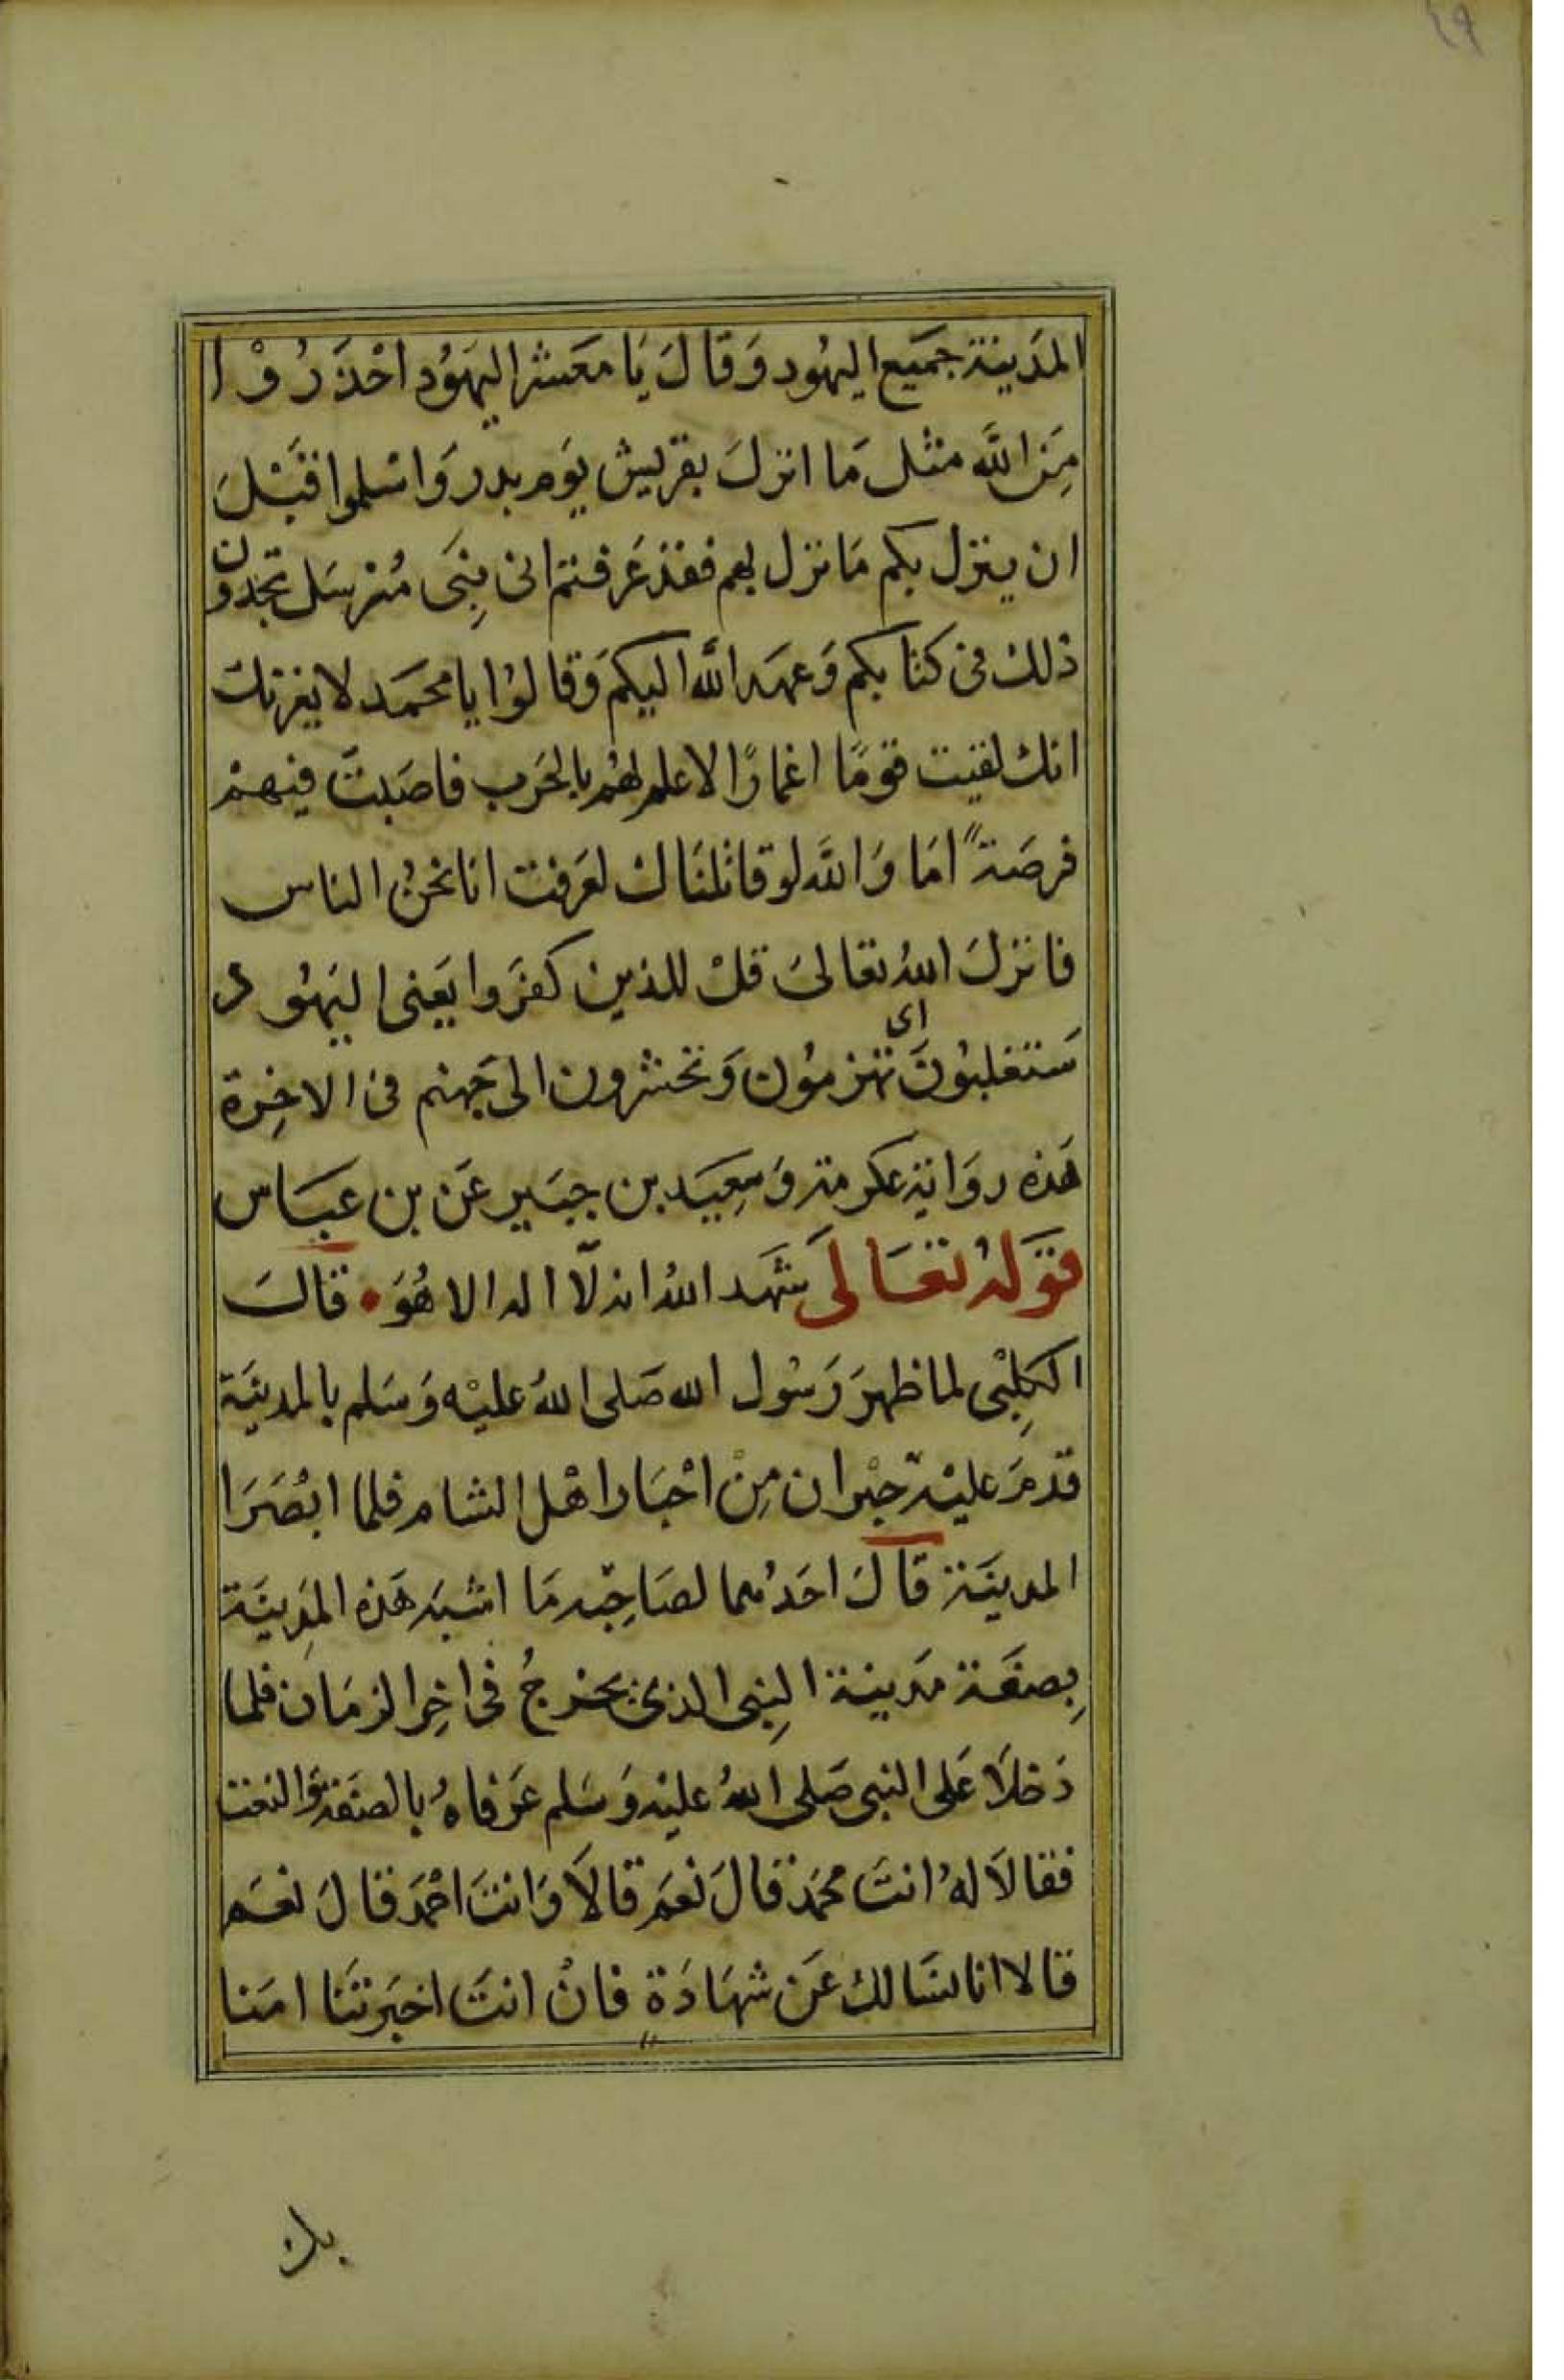 ٤٩
المَدينة جميَع اليهُود وَقالَ يَا معَشر اليهَوُد احْذَرُوْا
مِنَ اللَّه مثْل مَا انزلَ بقريش يَوم بدر وَاسْلموا قبْلَ
ان ينزل بكم مَا نزل بهم فقذ عَرفتم انى نِبَى مُرسَل تجدون
ذلك فى كتابكم وَعهَد اللَّه اليكم وَقالوُا يا محمَد لا يغرنك
انك لقيت قومًا اغمارًا لا علم لهُم بالحَرب فاصَبتَ فيهمْ
فرصَةً امَا وَاللَّه لو قاتلنَاك لعَرفت انا نحنُ الناس
فانزلَ اللهُ تعَالىَ قلْ للذين كفرَوا يَعنى اليَهوُد
سَتغلبُونَ اى تهزموُن وَتحَشرون الى جَهنم فى الاخِرة
هَذه روَاية عكرمة وَسَعِيَد بن جبَير عَن بن عَبَاس
قوَلهُ تعَالَى شَهَد اللهُ انه لآ اله الا هُوَ • قالَ
الكلِبْى لما ظهرَ رَسُول الله صَلى اللهُ عليْه وَسَلم بالمدينَة
قدمَ عليْهِ حبْران مِنْ احْبَار اهْل الشام فلما ابْصَرَا
المدينَة قالَ احَدُهما لصَاحِبه مَا اشبَه هَذه المَدِينَة
بِصفَة مَدينة النِبى الذى يخرجُ فى اخِر الزمَان فلما
دَخلَا عَلى النبى صَلى اللهُ عليْه وَسَلم عَرَفاهُ بالصفَة وَالنعت
فقالَا لهُ انتَ محمَد قالَ نعَم قالَا وَانتَ احْمَد قالَ نعَم
قالا انا نسَالك عَن شهَادَة فانْ انتَ اخبَرتنَا امَنا
بك